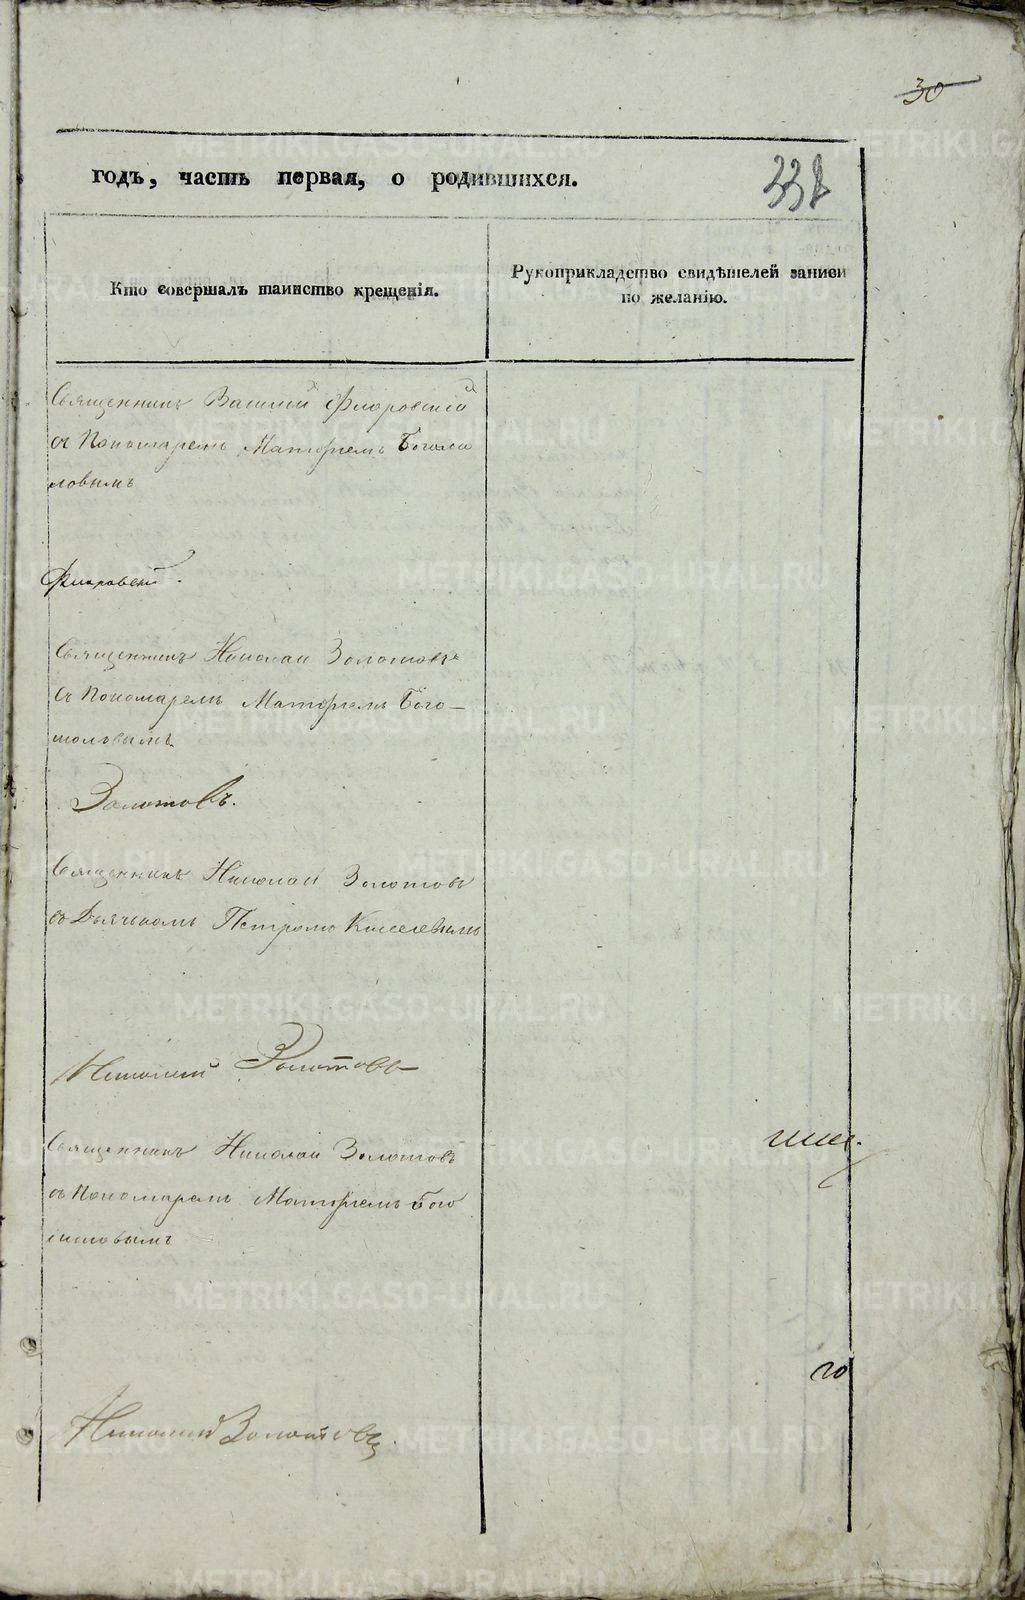 30
годъ, часть первая, о родившихся.
338
Кто совершалъ таинство крещенія.
Рукоприкладство свидѣтелей записи
по желанію.
Священникъ Василій Флоровскій
съ Пономаремъ Матфіемъ Богомо
ловымъ
Флоровскій.
Священникъ Николай Золотовъ
съ Пономаремъ Матфіемъ Бого-
моловымъ
Золотовъ.
Священникъ Николай Золотовъ
съ Дьячкомъ Петромъ Киселевымъ
Николай Золотовъ
Священникъ Николай Золотовъ
съ Пономаремъ Матфіемъ Бого
моловымъ
го
Николай Золотовъ.
METRIKI.GASO-URAL.RU